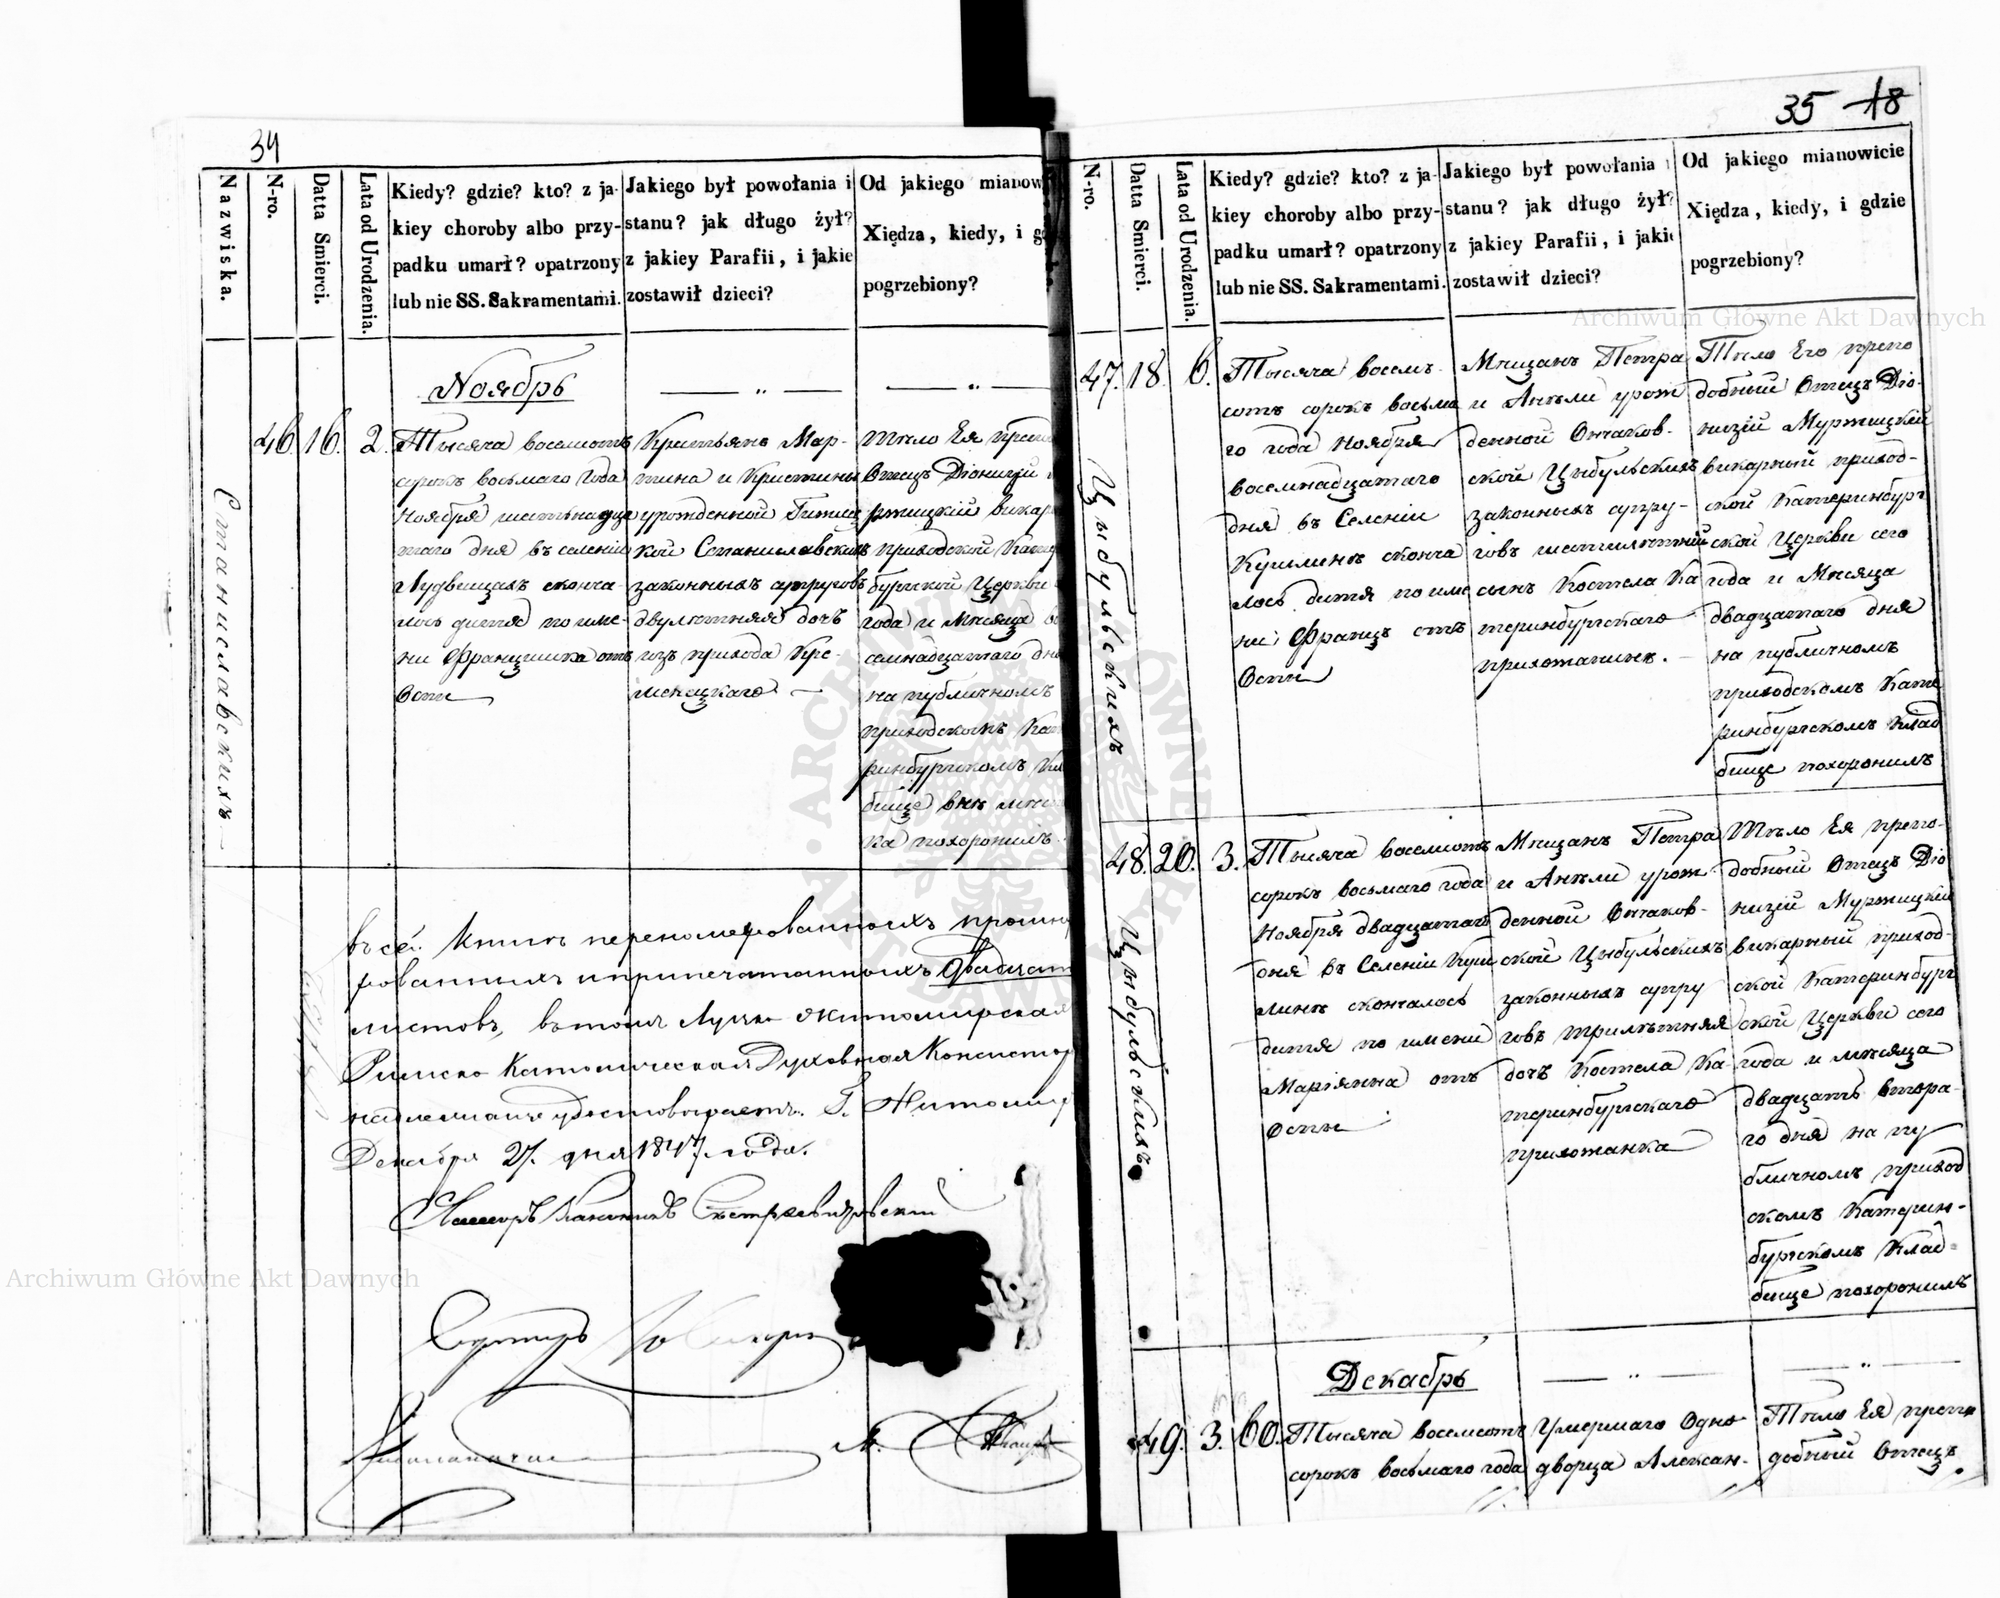 34
Nazwiska.
N-ro.
Datta Smierci.
Lata od Urodzenia.
Kiedy? gdzie? kto? z ja-
kiey choroby albo przy-
padku umarł? opatrzony
lub nie SS. Sakramentami.
Jakiego był powołania i
stanu? jak długo żył?
z jakiey Parafii, i jakie
zostawił dzieci?
Od jakiego mianow
Xiędza, kiedy, i g
pogrzebiony?
Ноябрь
Станиславскихъ
46. 16. 2.
Тысяча восемсотъ
сорокъ восьмаго года
Ноября шестьнадца
таго дня въ селеніи
Лудвищахъ сконча-
лось дитя по име-
ни Францишка отъ
Оспы
Крестьянъ Мар-
тина и Кристины
урожденной
кой Станиславскихъ
законныхъ супруговъ
двулѣтняя дочь
изъ прихода Кре-
менецкаго
тѣло Ея
Отецъ Діонизій
ржицкій викар
приходской
бургской Церкви
года и Мѣсяца
семнадцатаго дня
на публичномъ
приходскомъ
ринбургскомъ
бище
ка похоронилъ
въ сей Книгѣ перенумерованныхъ прошну
рованныхъ и припечатанныхъ двадцать
листовъ, въ томъ Луцко Житомирская
Римско Католическая Духовная Консистор
надлежаще удостовѣряетъ. Г. Житомир
Декабря 27. дня 1847 года.
35 18
N-ro.
Datta Smierci.
Lata od Urodzenia.
Kiedy? gdzie? kto? z ja-
kiey choroby albo przy-
padku umarł? opatrzony
lub nie SS. Sakramentami.
Jakiego był powołania i
stanu? jak długo żył?
z jakiey Parafii, i jakie
zostawił dzieci?
Od jakiego mianowicie
Xiędza, kiedy, i gdzie
pogrzebiony?
Цыбульскихъ
47. 18. 6.
Тысяча восемъ-
сотъ сорокъ восьма
го года Ноября
восемнадцатаго
дня въ Селеніи
Кушлинѣ сконча
лось дитя по име
ни Францъ отъ
Оспы
Мѣщанъ Петра
и Анѣли урож
денной Ончаков-
ской Цыбульскихъ
законныхъ супру-
говъ шестилѣтній
сынъ Костела Ка
теринбургскаго
прихожанинъ.
Тѣло Его препо
добный Отецъ Діо-
низій Муржицкій
викарный приход-
ской Катеринбург
ской Церкви сего
года и Мѣсяца
двадцатаго дня
на публичномъ
приходскомъ Кате
ринбургскомъ Клад
бище похоронилъ
Цыбульскихъ
48. 20. 3.
Тысяча восемсотъ
сорокъ восьмаго года
Ноября двадцатаго
дня въ Селеніи Куш
линѣ скончалось
дитя по имени
Маріянна отъ
Оспы
Мѣщанъ Петра
и Анѣли урож-
денной Ончаков-
ской Цыбульскихъ
законныхъ супру
говъ трилѣтняя
дочь Костела Ка-
теринбургскаго
прихожанка
Тѣло Ея препо-
добный Отецъ Діо
низій Муржицкій
викарный приход-
ской Катеринбург
ской Церкви сего
года и мѣсяца
двадцать втора-
го дня на пу
бличномъ приход
скомъ Катерин-
бургскомъ Клад-
бище похоронилъ
Декабрь
49. 3. 60.
Тысяча восемсотъ
сорокъ восьмаго года
Умершаго Одно-
дворца Алексан-
Тѣло Ея препо
добный Отецъ
Archiwum Główne Akt Dawnych
Archiwum Główne Akt Dawnych
ARCHIWUM GŁÓWNE AKT DAWNYCH